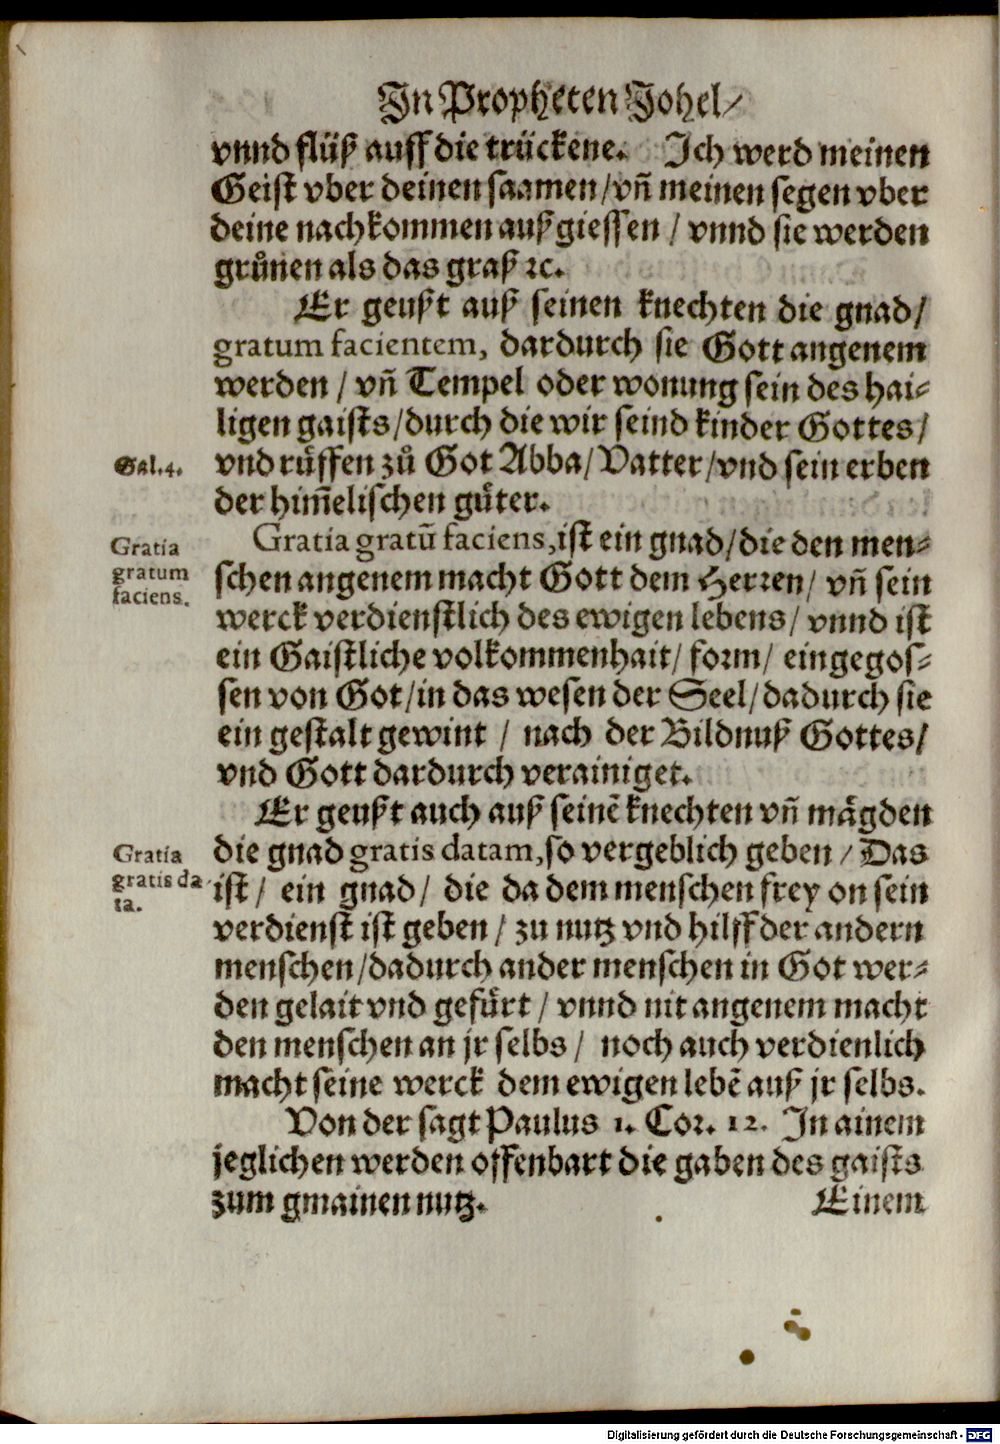 In Propheten Johel/
vnnd flüß auff die trückene. Ich werd meinen
Geist vber deinen saamen/vñ meinen segen vber
deine nachkommen außgiessen/ vnnd sie werden
grůnen als das graß ꝛc.
Er geußt auß seinen knechten die gnad/
gratum facientem, dardurch sie Gott angenem
werden/ vñ Tempel oder wonung sein des hai⸗
ligen gaists/durch die wir seind kinder Gottes/
Gal.4.
vnd růffen zů Got Abba/Vatter/vnd sein erben
der him̃elischen gůter.
Gratia gratum faciens.
Gratia gratũ faciens, ist ein gnad/die den men⸗
schen angenem macht Gott dem Herren/ vñ sein
werck verdienstlich des ewigen lebens/ vnnd ist
ein Gaistliche volkommenhait/ form/ eingegos⸗
sen von Got/in das wesen der Seel/dadurch sie
ein gestalt gewint/ nach der Bildnuß Gottes/
vnd Gott dardurch verainiget.
Er geußt auch auß seinẽ knechten vñ mägden
Gratia gratis data.
die gnad gratis datam, so vergeblich geben/ Das
ist/ ein gnad/ die da dem menschen frey on sein
verdienst ist geben/ zu nutz vnd hilff der andern
menschen/dadurch ander menschen in Got wer⸗
den gelait vnd gefürt/ vnnd nit angenem macht
den menschen an jr selbs/ noch auch verdienlich
macht seine werck dem ewigen lebẽ auß jr selbs.
Von der sagt Paulus 1. Cor. 12. In ainem
jeglichen werden offenbart die gaben des gaists
zum gmainen nutz. Einem
Digitalisierung gefördert durch die Deutsche Forschungsgemeinschaft - DFG